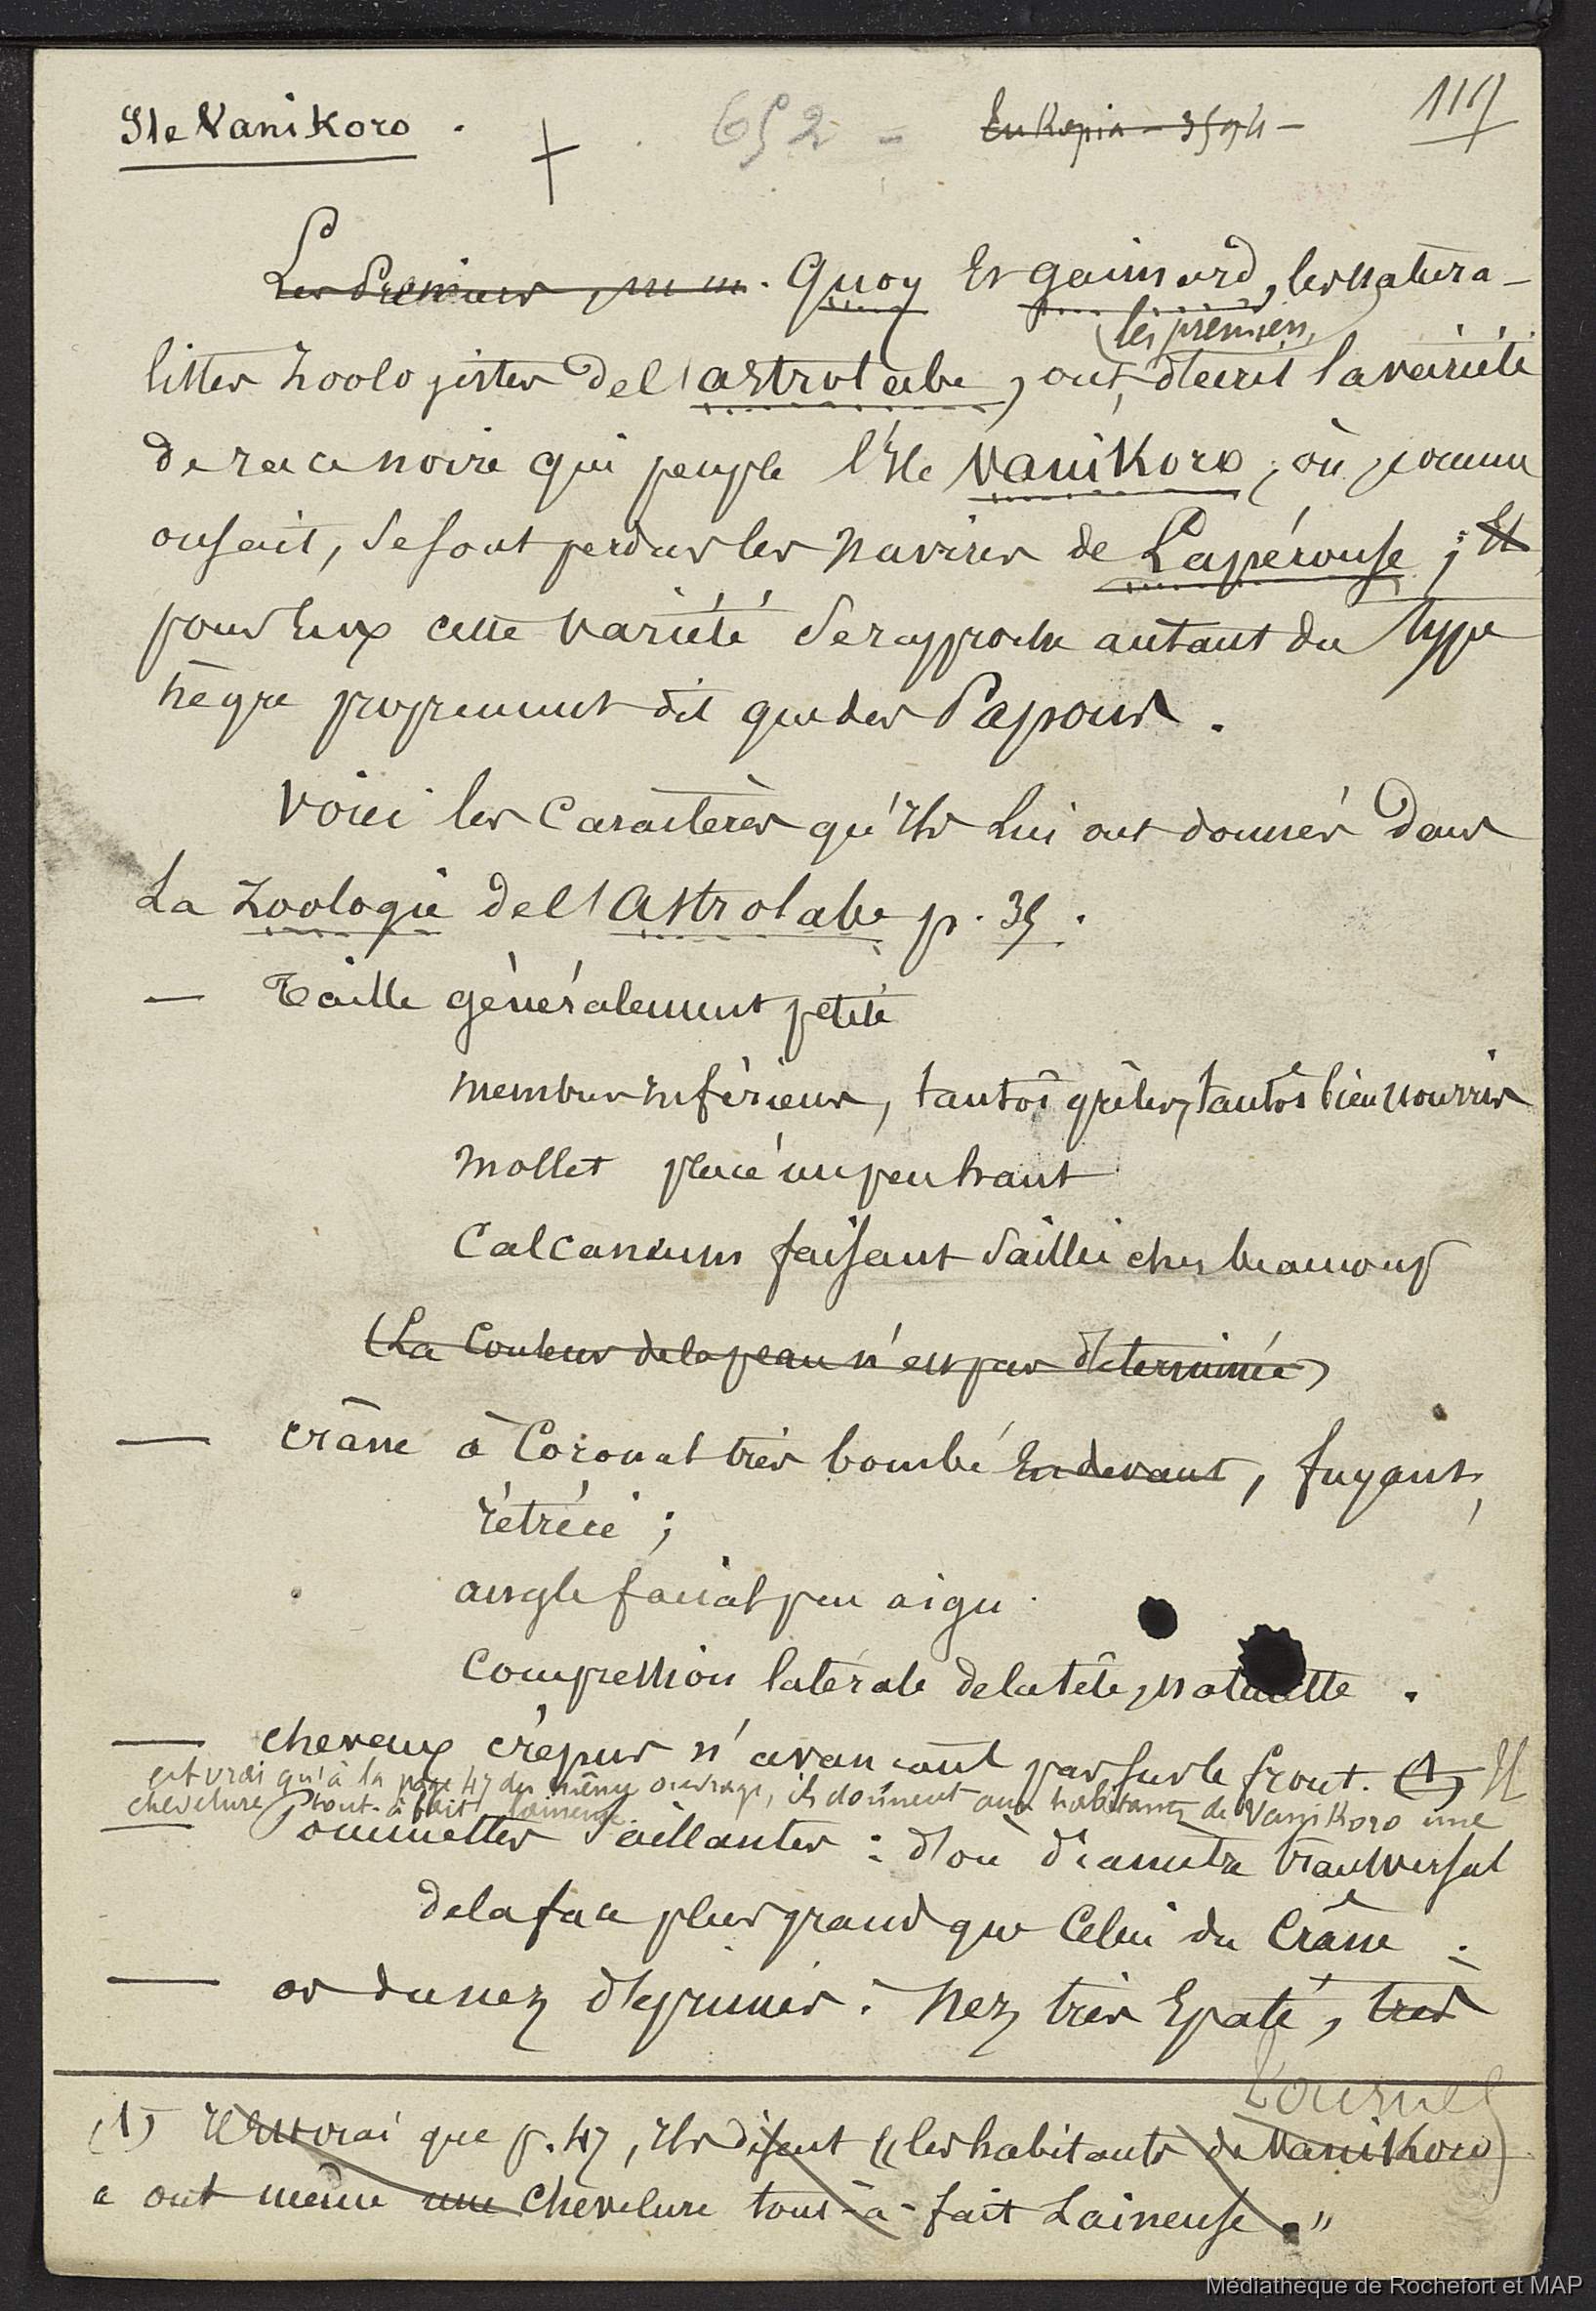 Ile Vanikoro .
652 -
117
Les Premiers, m m. Quoy Et gaimard, les natura-
(les premiers,)
listes zoologistes de l'astrolabe, ont, décrit la variété
de race noire qui peuple l'Ile Vanikoro, où, comme
on sait, se sont perdus les navires de Lapérouse ; Et
pour Eux cette variété se rapproche autant du type
nègre proprement dit que des Papous .
Voici les Caractères qu'Ils lui ont donnés dans
La zoologie de l'Astrolabe p. 35 .
— Taille généralement petite
membres Inférieurs, tantôt grêles, tantôt bien nourris
mollet placé un peu haut
Calcanéum faisant saillie chez beaucoup
(La Couleur de la peau n'est pas déterminée)
— crâne à Coronal très bombé En devant, fuyant,
rétréci ;
angle facial peu aigu .
Compression latérale de la tête, naturelle .
— cheveux crépus n'avançant pas sur le front. (1) Il
est vrai qu'à la page 47 du même ouvrage, ils donnent aux habitants de Vanikoro une
chevelure tout-à-fait laineuse.
— Pommettes saillantes : d'où diamètre transversal
de la face plus grand que Celui du Crâne .
— os du nez déprimés . Nez très Epaté, très
Tournez
(1) Il est vrai que p. 47, Ils disent "les habitants de Vanikoro
" ont même une Chevelure tout-à-fait Laineuse . "
Médiathèque de Rochefort et MAP